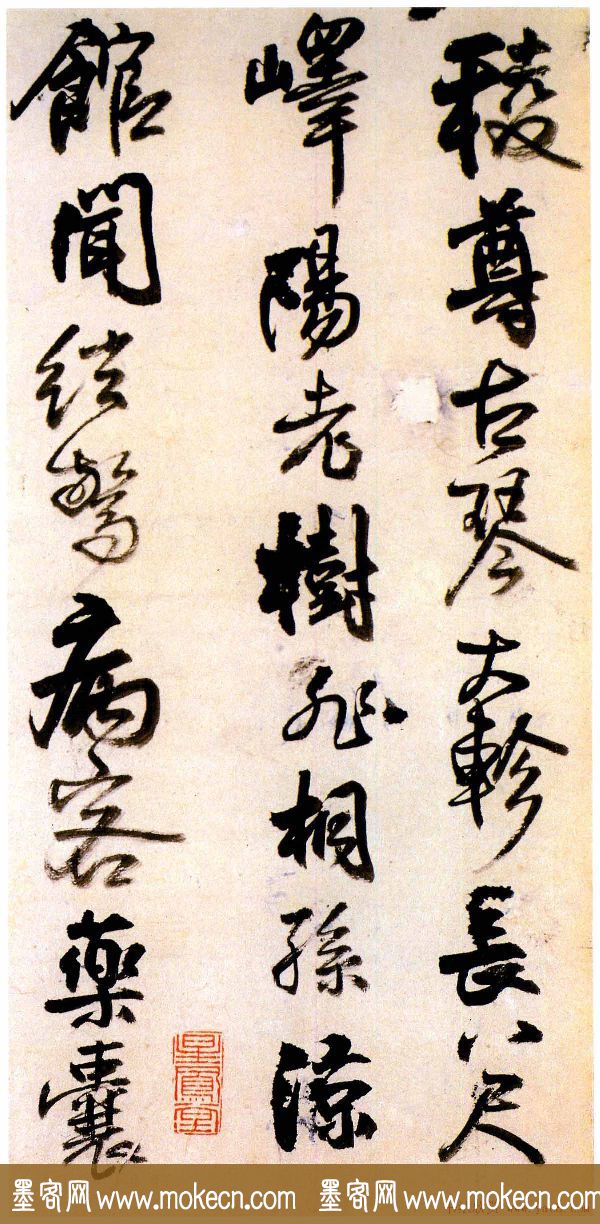 稜尊古琴大軫長八尺
嶧陽老樹非桐孫涼
館聞絃驚病客藥囊
墨客网 www.mokecn.com 墨客网 www.mokecn.com